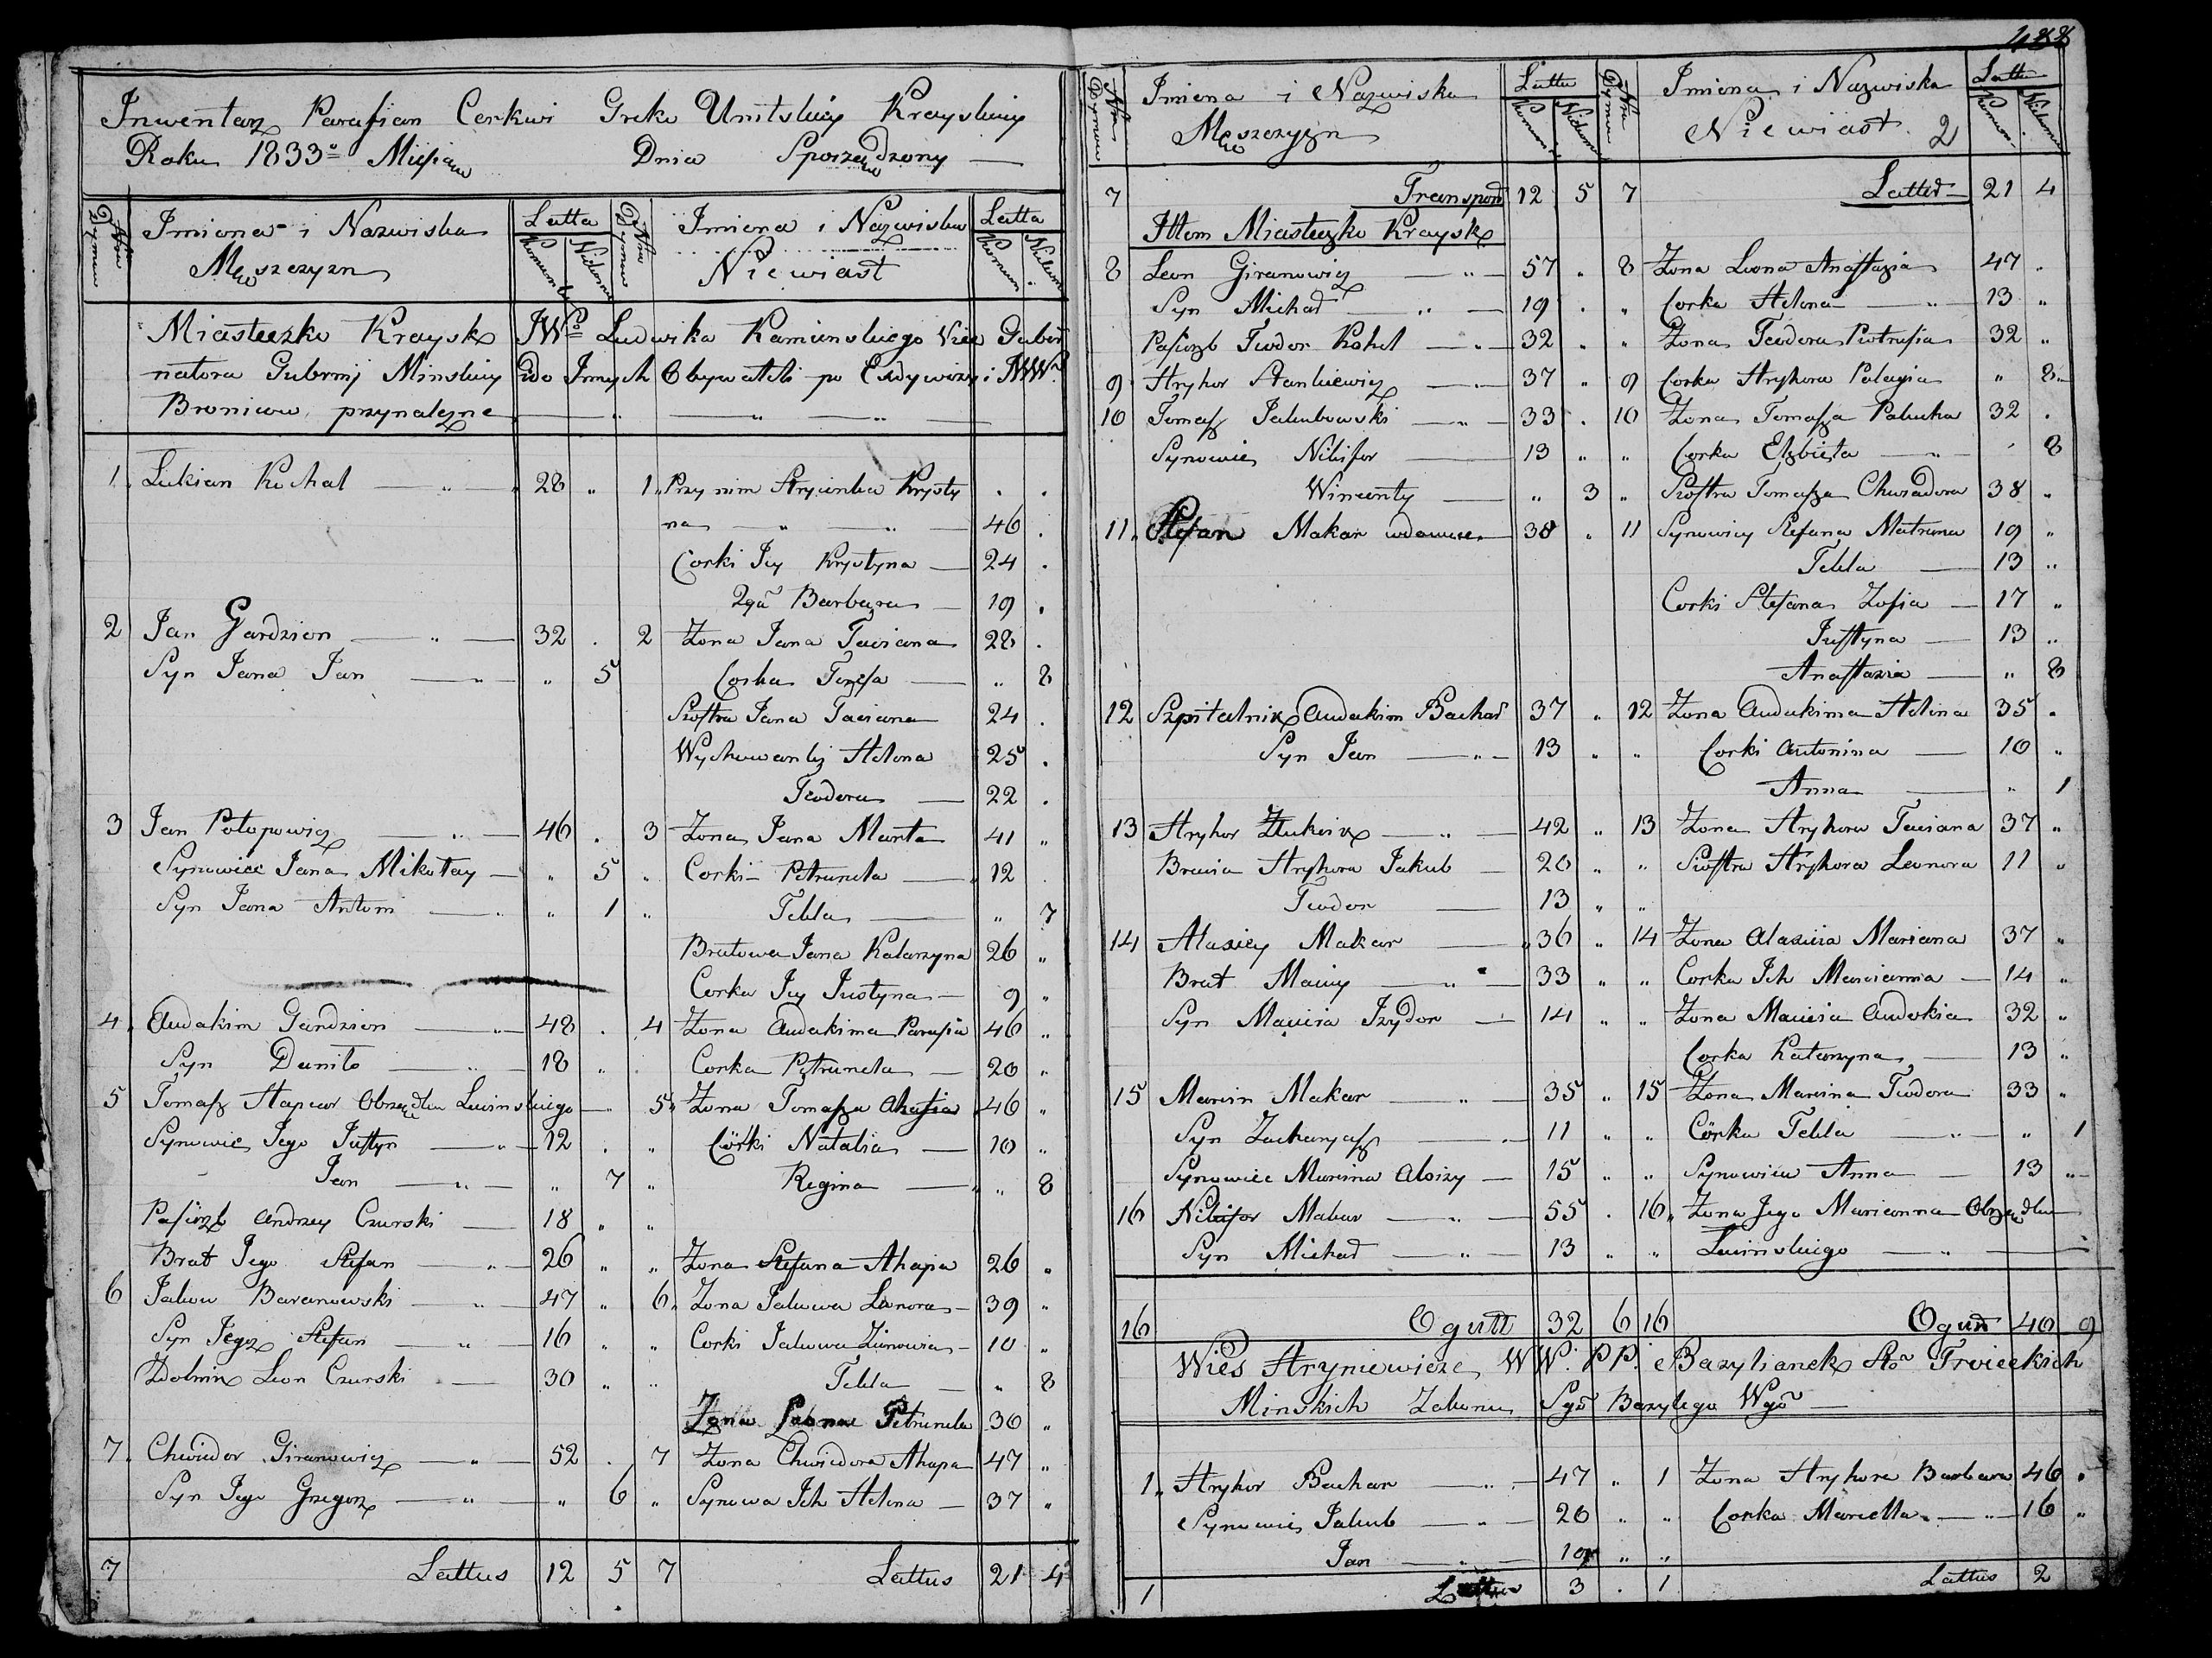 Inwentarz Parafian Cerkwi Greko Unitskiey Krayskiey
Roku 1833º Miesiąca Dnia Sporządzony —
Nro Dymow Imiona i Nazwiska Męszczyzn Latta Komun. Niekomu. Nro Dymow Imiona i Nazwiska Niewiast Latta Komun. Niekom.
Miasteczko Kraysk JWgo Ludwika Kamienskiego Vice Guber
natora Gubernij Minskiey i do Innych Obywateli po Exdywizyi JWW.
Broniców przynależne — " — " — " —
1. Łukian Kuchal — " — 28 " 1. Przy nim Stryienka Krysty . .
na — " — " — 46 .
Corki Jey Krystyna — 24 .
2ga Barbara — 19 .
2 Jan Gardzion — " — 32 . 2 Zona Jana Taciana 28 .
Syn Jana Jan — " " 5 Corka Teresa — " 8
Siostra Jana Taciana 24 .
Wychowanki Helena 25 .
Teodora — 22 .
3 Jan Potopowicz — " — 46 . 3 Zona Jana Marta 41 "
Synowiec Jana Mikołay — " 5 " Corki Petrunela — 12 .
Syn Jana Antoni — " " 1 " Tekla — " 7
Bratowa Jana Katarzyna 26 "
Corka Jey Justyna — 9 "
4. Audakim Gardzion — " — 48 . 4 Zona Audakima Parasia 46 "
Syn Daniło — " — 18 " Corka Petrunela — 20 "
5 Tomasz Hapiar Obrządku Łacinskiego — 5 " Zona Tomasza Ahafia 46 "
Synowie Jego Justyn — " — 12 . " Córki Natalia — 10 "
Jan — " — " 7 " Regina — " 8
Pasierzb Andrzey Czurski — 18 " "
Brat Jego Stefan — " — 26 " " Zona Stefana Ahapa 26 "
6 Jakow Baranowski — " — 47 " 6 " Zona Jakowa Leanora — 39 "
Syn Jegoz Stefan — " — 16 " " Corki Jakowa Zienowia — 10 "
Zdolnik Leon Czurski — 30 " " Tekla — " 8
Zona Leona Petrunela 30 "
7. Chwiedor Giranowicz — " — 52 . 7 Zona Chwiedora Ahapa 47 "
Syn Jego Grzegorz — " — " 6 " Synowa Ich Helena — 37 "
7 Lattus 12 5 7 Lattus 21 4
488
Nro Dymow Imiona i Nazwiska Męszczyzn Latta Komun. Niekomu Nro Dymow Imiona i Nazwiska Niewiast. 2 Latta Komun. Niekomu
7 Transport 12 5 7 Latted — 21 4
Item Miasteczko Kraysk
8 Leon Giranowicz — " — 57 . 8 Zona Leona Anastazia 47 .
Syn Michał — " — 19 . " Corka Helena — " — 13 "
Pasierzb Teodor Kohel — " — 32 " " Zona Teodora Piotrusia 32 "
9 Hryhor Stankiewicz — " — 37 " 9 Corka Hryhora Palagia " 8
10 Tomasz Jakubowski — " — 33 . 10 Zona Tomasza Paluka 32 .
Synowie Nikifor — 13 " " Corka Elzbieta — " — 8
Wincenty — " 3 " Siostra Tomasza Chwiadora 38 "
11. Stefan Makar wdowiec — 38 " 11 Synowicy Stefana Matruna 19 "
Tekla — 13 "
Corki Stefana Zofia — 17 "
Justyna — 13 "
Anastazia — " 8
12 Szpitalnik Audakim Bachar 37 " 12 Zona Audakima Helena 35 "
Syn Jan — " — 13 " " Corki Antonina — 10 "
Anna — " 1
13 Hryhor — " — 42 " 13 Zona Hryhora Taciana 37 "
Bracia Hryhora Jakub — 20 " " Siostra Hryhora Leonora 11 "
Teodor — 13 " "
14 Alaxiey Makar — 36 " 14 Zona Alaxieia Mariana 37 "
Brat Maciey — " — 33 " " Corka Ich Marcianna — 14 "
Syn Macieia Izydor — 14 " " Zona Macieia Audokia 32 "
Corka Katarzyna — 13 "
15 Marcin Makar — " — 35 " 15 Zona Marcina Teodora 33 "
Syn Zacharyasz — " 11 " " Córka Tekla — " — " 1
Synowiec Marcina Aloizy — 15 " " Synowica Anna — 13 "
16 Nikifor Makar — " — 55 . 16 " Zona Jego Marianna Obrządku
Syn Michał — " — 13 " " Łacinskiego — " —
16 Ogułł 32 6 16 Oguł 40 9
Wies Hryniewicze WW. PP. Bazylianek Sto Troieckich
Minskich Zakonu Sgo Bazylego Wgo —
1 " Hryhor Bachar — " — 47 " 1 Zona Hryhora Barbara 46 "
Synowie Jakub — " — 20 " " Corka Marcella — " — 16 "
Jan — " — 10 " "
1 Lattus 3 . 1 Lattus 2